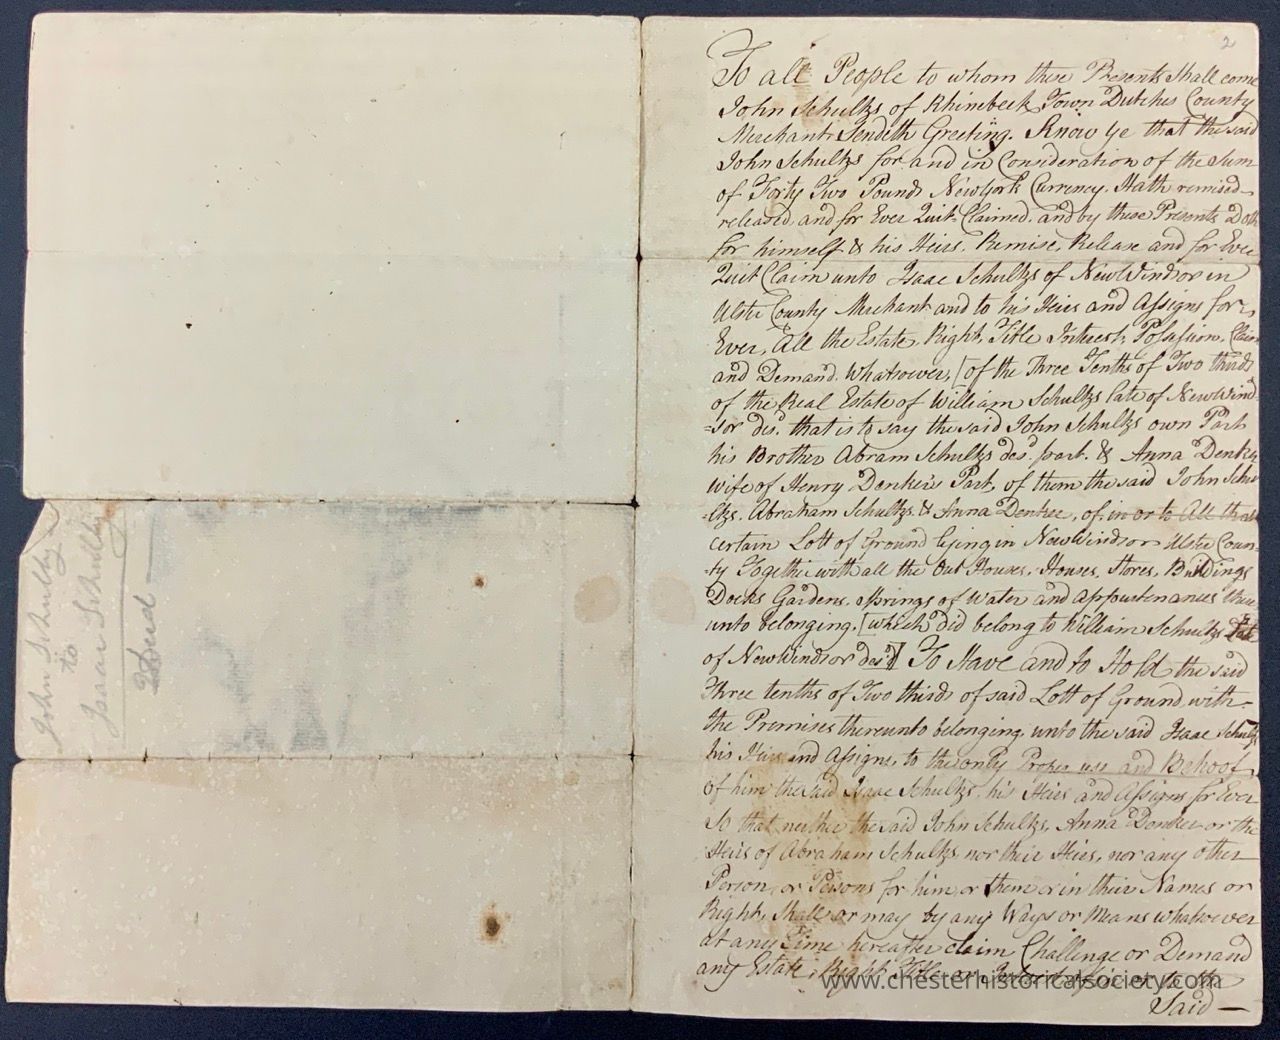 John Schultz
to
Isaac Schultz
Deed
2
To all People to whom these Presents Shall come
John Schultzs of Rhinebeck Town Dutches County
Merchant Sendeth Greeting. Know ye that the said
John Schultzs for and in Consideration of the Sum
of Forty Two Pounds NewYork Currency. Hath remised
released, and for Ever Quit Claimed, and by these Presents Doth
for himself & his Heirs. Remise, Release and for Ever
Quit Claim unto Isaac Schultzs of NewWindsor in
Ulster County Merchant and to his Heirs and Assigns for
Ever, All the Estate, Right, Title Interest, Possession, Claim
and Demand. Whatsoever, [of the Three Tenths of Two thirds
of the Real Estate of William Schultzs late of NewWind
=sor des. that is to say the said John Schultzs own Part
his Brother Abram Schultzs des.d part. & Anna Denker
wife of Henry Denker's Part, of them the said John Schu
=ltzs. Abraham Schultzs & Anna Denker, of. in or to All that
certain Lott of Ground lying in NewWindsor Ulster Coun=
ty Together with all the Out Houses, Houses, Stores, Buildings
Docks Gardens. Springs of Water and Appurtenances there
unto belonging. [which did belong to William Schultzs late
of NewWindsor des'd] To Have and to Hold the said
Three tenths of Two thirds of said Lott of Ground with
the Premises thereunto belonging unto the said Isaac Schultzs
his Heirs and Assigns, to the only Proper use and Behoof
of him the said Isaac Schultzs, his Heirs and Assigns for Ever
So that neither the said John Schultzs, Anna Denker or the
Heirs of Abraham Schultzs nor their Heirs, nor any other
Person, or Persons for him or them or in their Names or
Right, Shall or may by any Ways or Means whatsoever
at any Time hereafter claim Challenge or Demand
any Estate, Right Title or Interest of in or to the
Said —
www.chesterhistoricalsociety.com